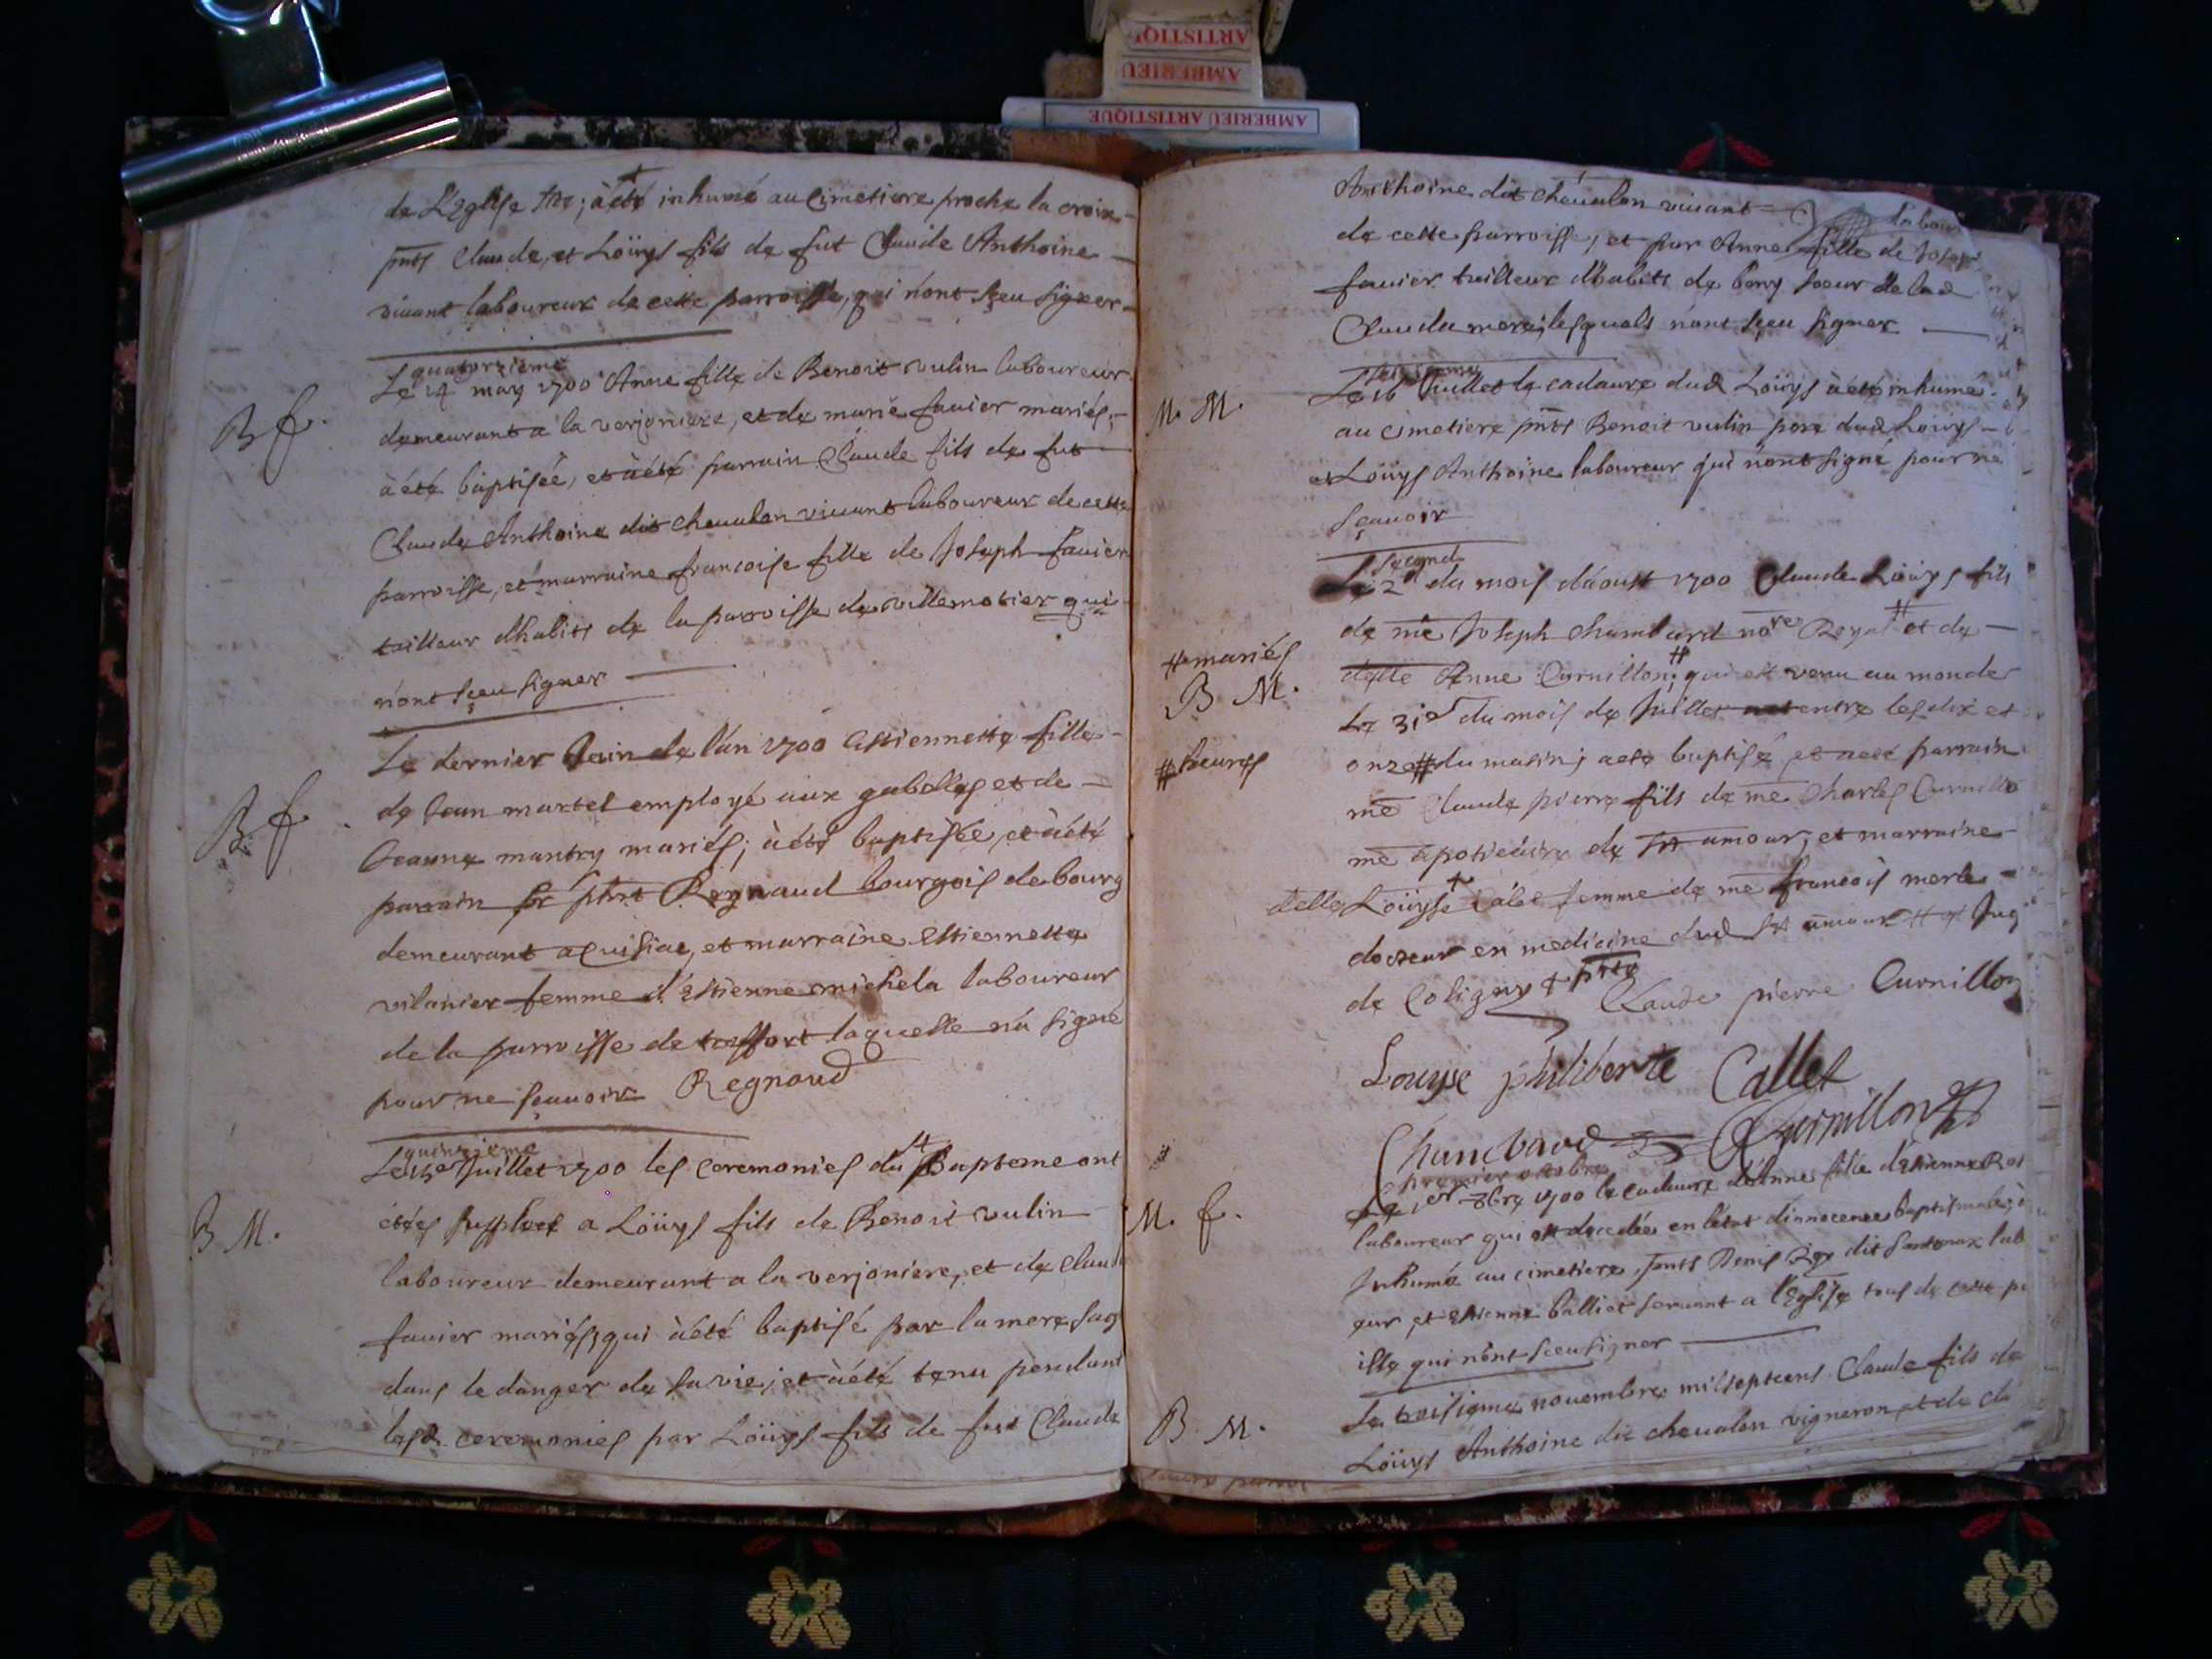 ARTISTIQUE
AMBERIEU
AMBERIEU ARTISTIQUE
de L'Eglise à été inhumé au Cimetiere proche la croix
pnts Claude, et Loüys fils de fut Claude Anthoine
vivant laboureur de cette parroisse, qui n'ont sceu signer
quatorzieme
Le 14 may 1700 Anne fille de Benoit vulin laboureur
B f.
demeurant a la verjoniere, et de marie favier mariés,
à été baptisée, et à été parrain Claude fils de fut
Claude Anthoine dit chevalon vivant laboureur de cette
parroisse, et marraine francoise fille de Joseph favier
tailleur dhabits de la parroisse de villemotier qui
n'ont sceu signer
Le dernier Juin de l'an 1700 Estiennette fille
B. f.
de Jean martel employé aux gabelles et de
Jeanne mantry mariés; à été baptisée, et à été
parrain sr phrt Regnaud bourgois de bourg
demeurant a Cuisiac, et marraine Estiennette
vilanier femme d'Estienne michela laboureur
de la parroisse de treffort laquelle n'a signé
pour ne scavoir Regnaud
quinzieme
Le 15e Juillet 1700 les ceremonies du Bapteme ont
étées a Loüys fils de Benoit vulin
B M.
laboureur demeurant a la verjoniere, et de Claud
favier mariés, qui à été baptisé par la mere sag
dans le danger de sa vie, et à été tenu pendant
lesd. ceremonies par Loüys fils de fut Claude
Anthoine dit chevalon vivant labour
de cette parroisse, et par Anne fille de Josep
favier tailleur dhabits de soeur de lad
Clauda mere, lesquels n'ont sceu signer
Le 16 Juillet le cadavre dud Loüys à été inhumé
M. M.
au cimetiere pnts Benoit vulin pere dud Loüys
et Loüys Anthoine laboureur qui n'ont signé pour ne
scavoir
second
Le 2d du mois d'aoust 1700 Claude Loüys fils
de me Joseph Chambard nore Royal # et de
# mariés
delle Anne Curnillon; # qui est venu au monde
B M.
Le 31e du mois de Juillet entre les dix et
# heures
onze # du matin; a été baptisé, et a été parrain
me Claude pierre fils de me Charles Curnillo
me apoticaire de st amour, et marraine
delle Loüyse + Calet femme de me francois merle
docteur en medicine dud st amour # et Jug
de Coligny + phrte Claude pierre Curnillon
Louyse philiberte Callet
Chambard Curnillon
premier octobre
Le 1er 8bre 1700 le cadavre d'Anne fille d'Estienne
M. f.
laboureur qui est decedée en létat d'innocence baptismale, à
Inhumé au cimetiere, pnts Denis dit lab
eur et Estienne balliet servant a l'Eglise tous de cette pa
isse qui n'ont sceu signer
Le troisieme novembre mil septcens Claude fils de
B. M.
Loüys Anthoine dit chevalon vigneron, et de cl